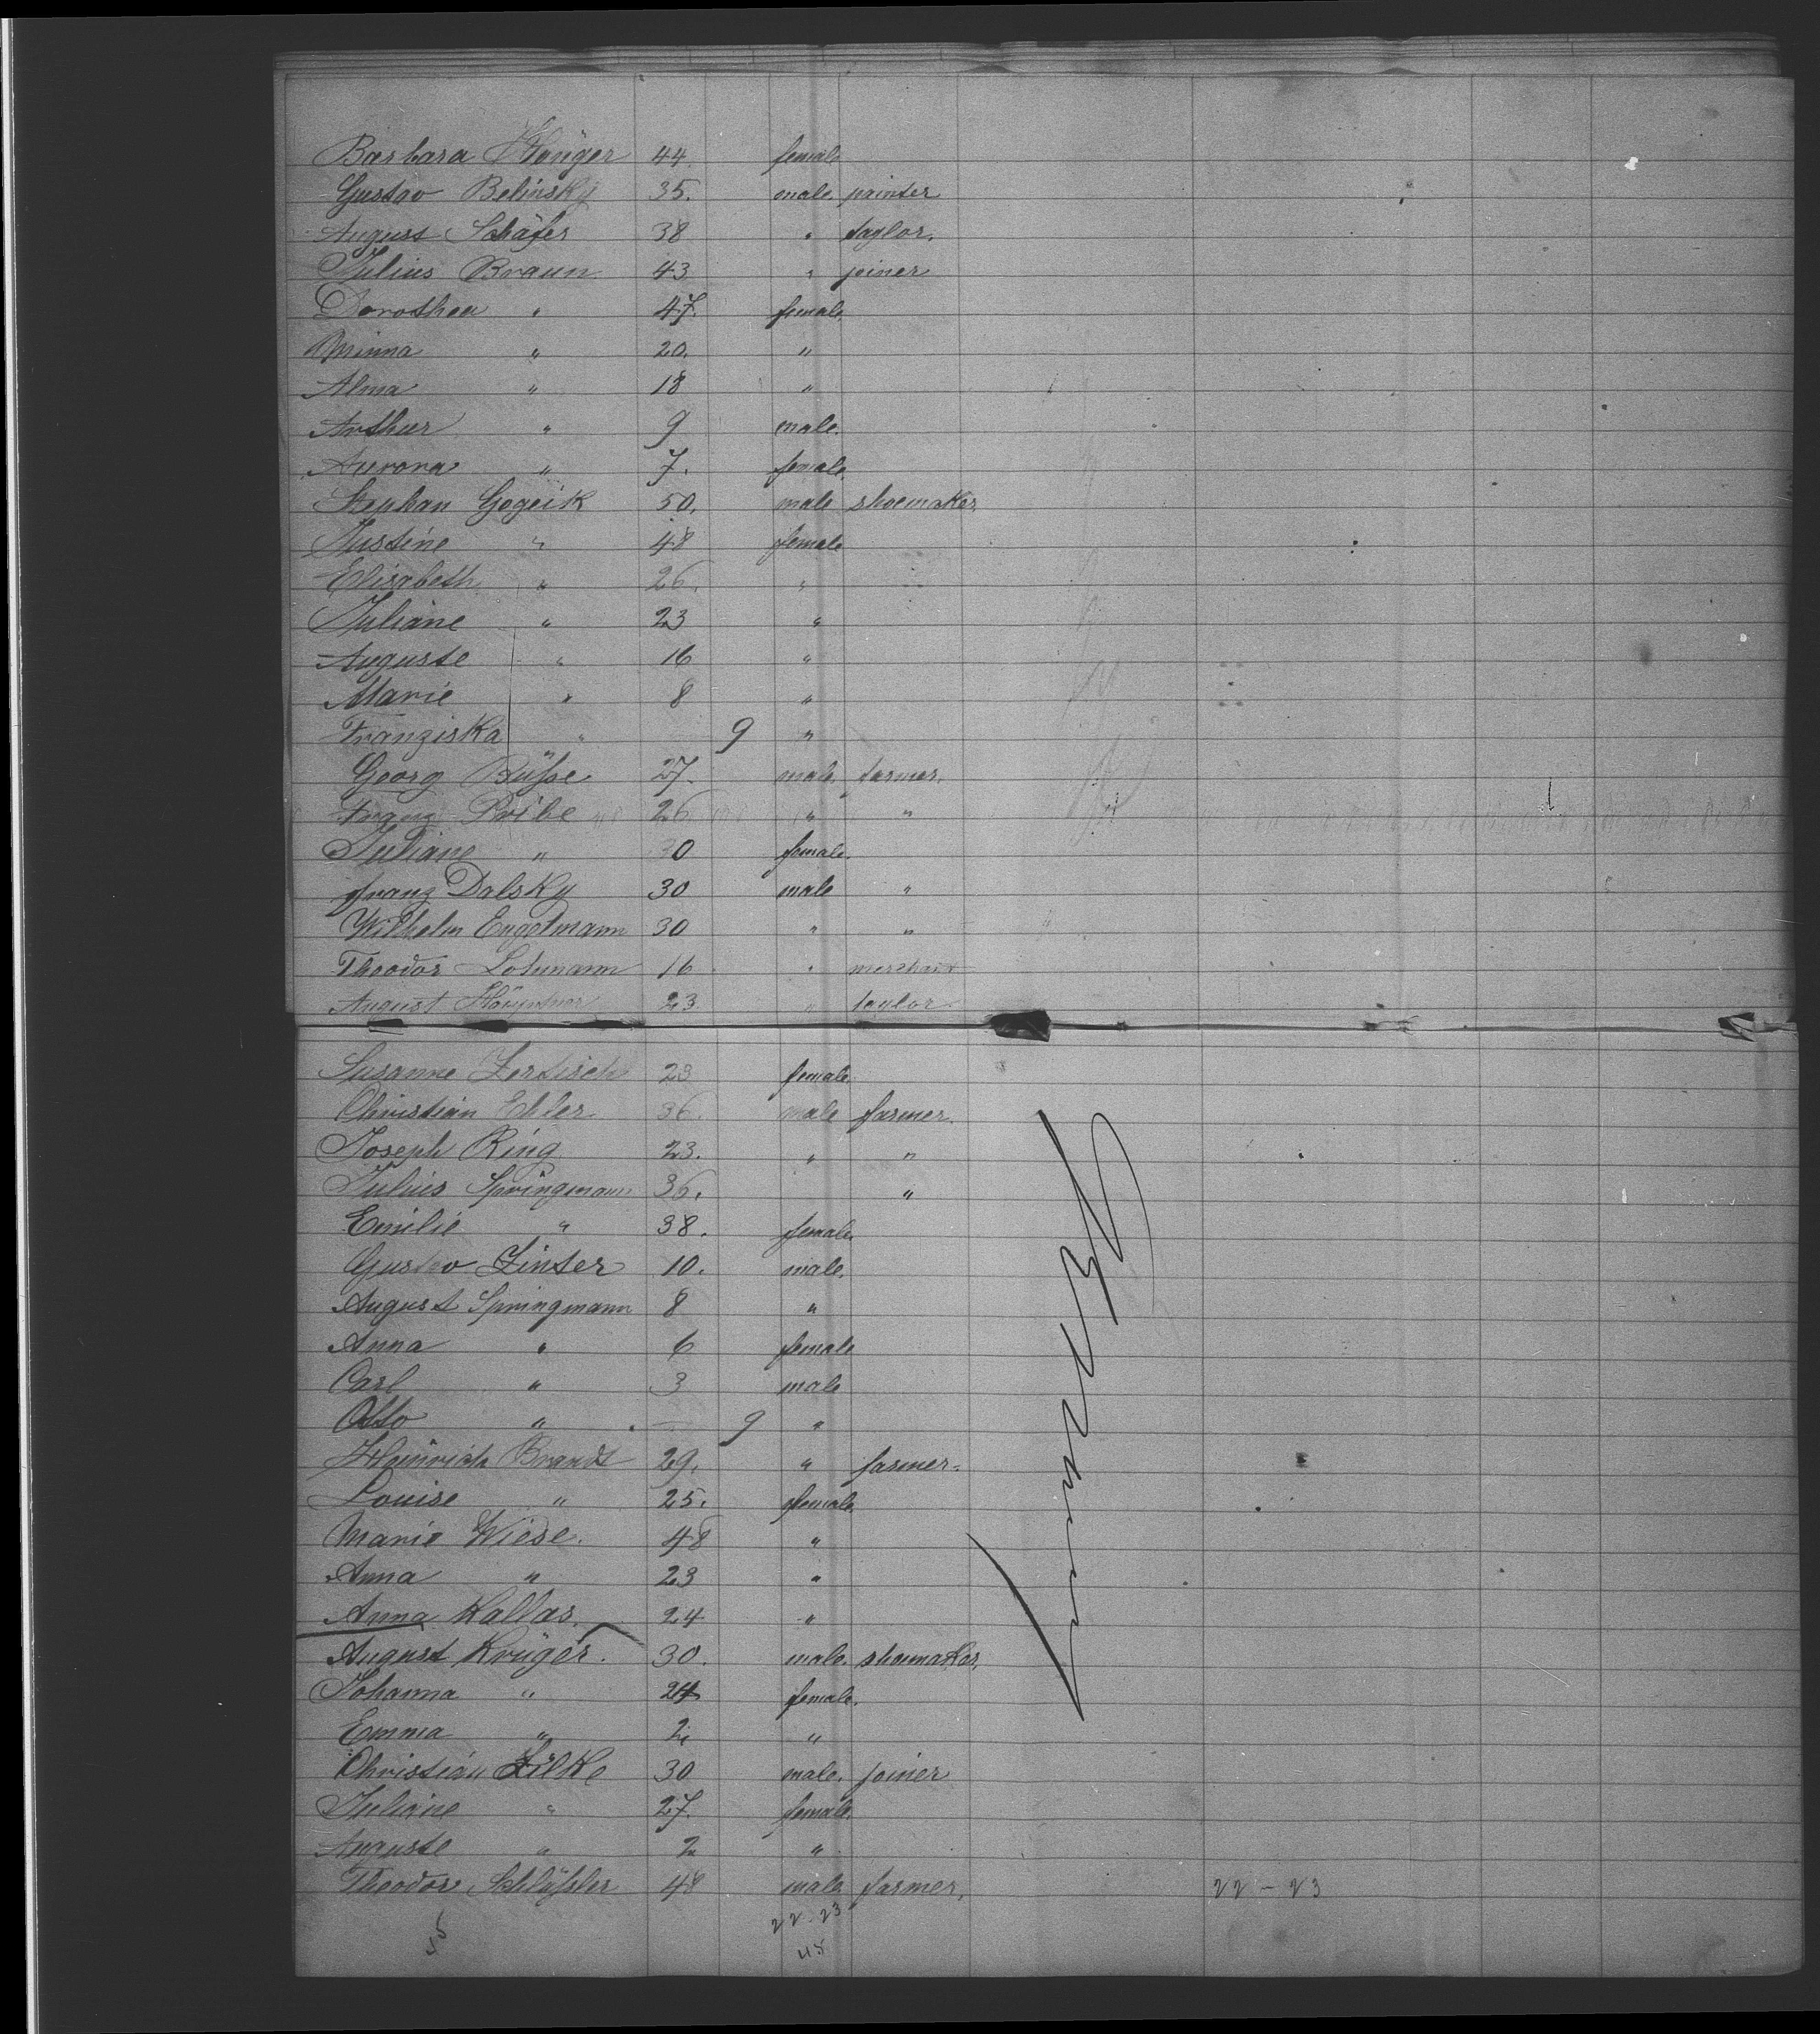 Barbara Hönger 44. female
Gustav Belinsky 35. male. printer
August Schäfer 38 " taylor.
Julius Braun 43 " joiner
Dorothea " 47. female
Minna " 20. "
Alma " 18 "
Arthur " 9 male.
Aurora " 7. female
Stephan Gogeik 50. male shoemaker
Justine " 48 female
Elisabeth " 26. "
Juliane " 23 "
Auguste " 16 "
Marie " 8 "
Franziska " 9 "
Georg Büsse 27. male farmer.
Franz Pribe 26 " "
Juliane " 30 female.
Franz Dalsky 30 male "
Wilhelm Engelmann 30 " "
Theodor 16 " merchant
August 23. " taylor
Susanne 23 female
Christian Ehler 36. male farmer.
Joseph Ring 23. " "
Julius Springmann 36. "
Emilie " 38. female.
Gustav Zinser 10. male.
August Springmann 8 "
Anna " 6 female
Carl " 3 male
Otto " — 9 "
Heinrich Brandt 29. " farmer.
Louise " 25. female
Marie Wiede. 48 "
Anna " 23 "
Anna Kallas. 24 "
August Krüger. 30. male. shoemaker.
Johanna " 24 female.
Emma " 2 "
Christian Zilke 30 male. joiner
Juliane " 27. female.
Auguste " 2 "
Theodor Schlässler 48 male farmer. 22 - 23
22-23
45